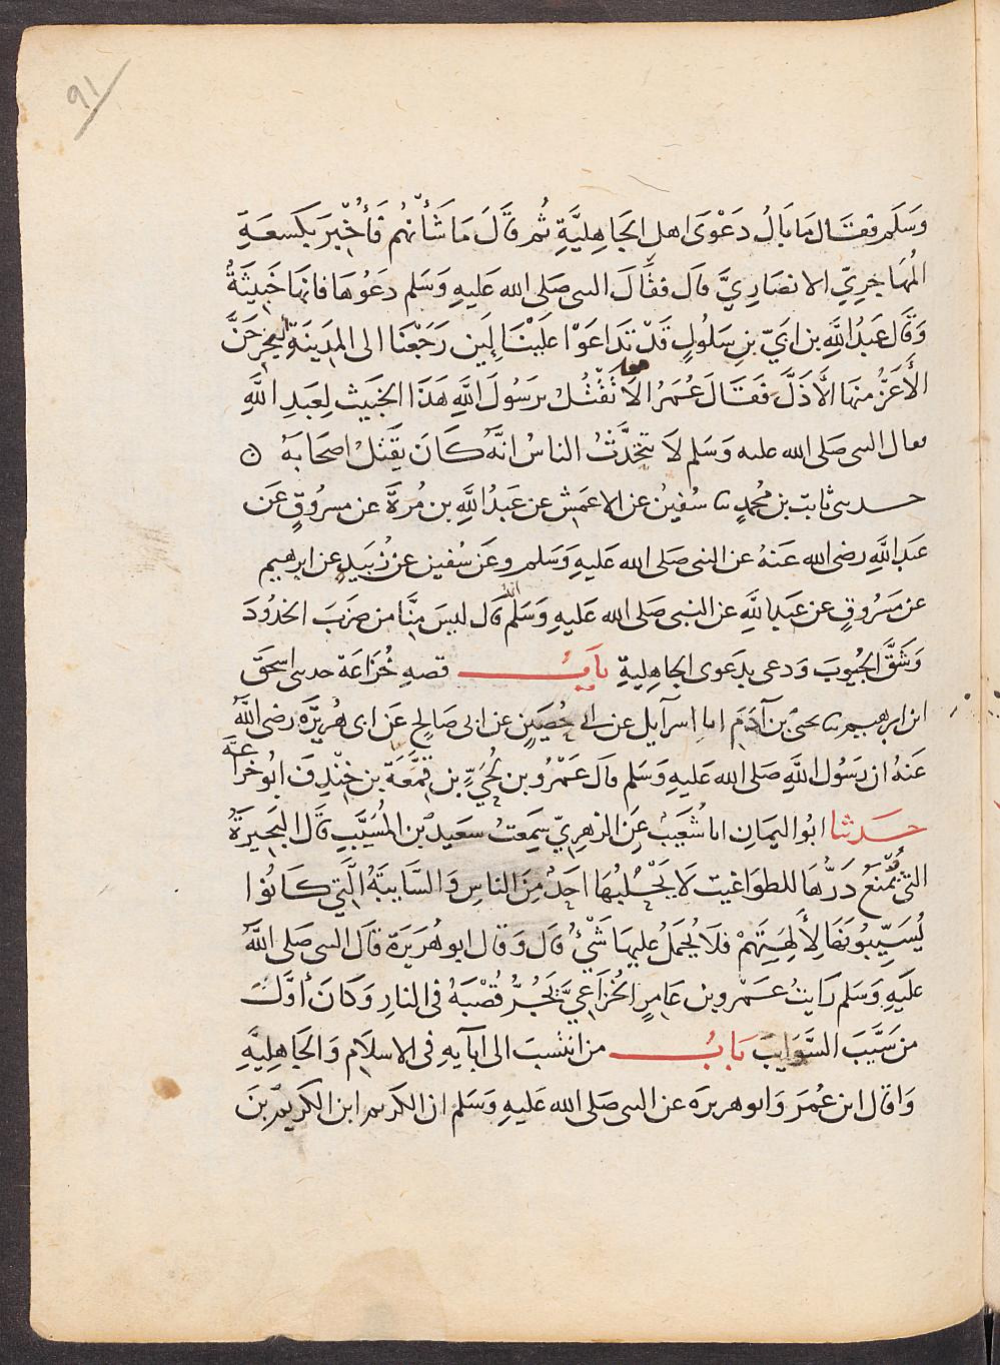 ٩١
وَسَلَم فقَالَ مَا بَالُ دَعْوَى اهلِ الجَاهِليَّةِ ثُم قَالَ مَا شَأنُهُم فَأُخْبِرَ بكَسعَةِ
المُهَاجِرِيّ الانصَارِيَّ قال فقَالَ النبى صَلى الله عَليهِ وَسَلم دَعُوهَا فانهَا خَبِيثَةٌ
وَقَال عَبدُ اللَّهِ بن ابَيّ بنِ سَلُولٍ قَدْ تدَاعَوْا عَلَيْنَا لَين رَجَعْنَا الى المدِينَةِ ليُخْرِجَنَّ
الأَعَزُّ منهَا الأَذَلَّ فَقَالَ عُمَرُ الاَ نَقْتُلُ يرَسُولَ اللَّهِ هَذَا الخَبيثَ لِعَبدِ اللَّهِ
فقال النبى صَلى الله عليه وَسَلم لاَ يتحَدَّثُ الناسُ انَّهُ كَانَ يَقتلُ اصحَابَهُ ۞
حدثنى ثابت بن مُحمدٍ ثنا سُفينُ عن الاعمَشِ عن عَبدُ اللَّهِ بن مُرةَ عن مسرُوقٍ عَن
عَبدِ اللَّهِ رضى الله عَنهُ عن النبى صَلى الله عَليهِ وَسَلم وعَن سُفين عن زُبَيدٍ عن ابرهيم
عن مَسرُوقٍ عن عَبدِ اللَّهِ عن النبى صَلى الله عَليهِ وَسَلم انه قال ليسَ منَّا من ضرَبَ الخدُودَ
وَشَقَّ الجيُوبَ وَدعى بدَعوى الجاهِليةِ بَابُ قصهِ خُزَاعَة حدثنى اسحَق
ابن ابرهيم ثنا يحيى بن آدَمَ انا اسرآيل عن ابى حُصَينٍ عن ابى صَالِحٍ عَن ابى هُرَيْرَة رضى اللَّهُ
عَنهُ ان رَسُول اللَّهِ صَلى الله عَليهِ وَسَلم قال عَمْرُو بن لُحَيِّ بن قمَعَةَ بن خِنْدِفَ ابُو خزَاعَةَ
حَدثنا ابوا اليمَانِ انا شُعَيبٌ عَن الزهرِيّ سَمِعتُ سَعيدَ بن المُسَيَّبِ قَالَ البَحِيرَةُ
التى يُمْنَعُ دَرُّهَا للطوَاغيت لاَ يَحْلُبُهَا احَدٌ مِنَ الناسِ وَالسَّايبَةُ الَّتِي كَانُوا
يُسَيِّبُونَهَا لِأَلِهَتِهِمْ فلَا يُحمَلُ عليهَا شَيْءٌ قالَ وَقال ابو هُرَيرَة قالَ النبى صَلى اللهُ
عَليَهِ وَسَلم رَايتُ عَمرو بن عَامِرٍ الخُزَاعِيَّ يَجُرُّ قُصْبَهُ فى النارِ وَكَانَ أوَّلَ
من سَيَّبَ السَّوَايبَ بَابُ من انتسَبَ الى ابآيهِ فى الاسلاَم وَالجاهِليَّهِ
وَاقال ابن عُمَرَ وَابو هريرَه عن النبى صَلى الله عَليهِ وَسَلم ان الكَريم ابن الكَريم بنَ